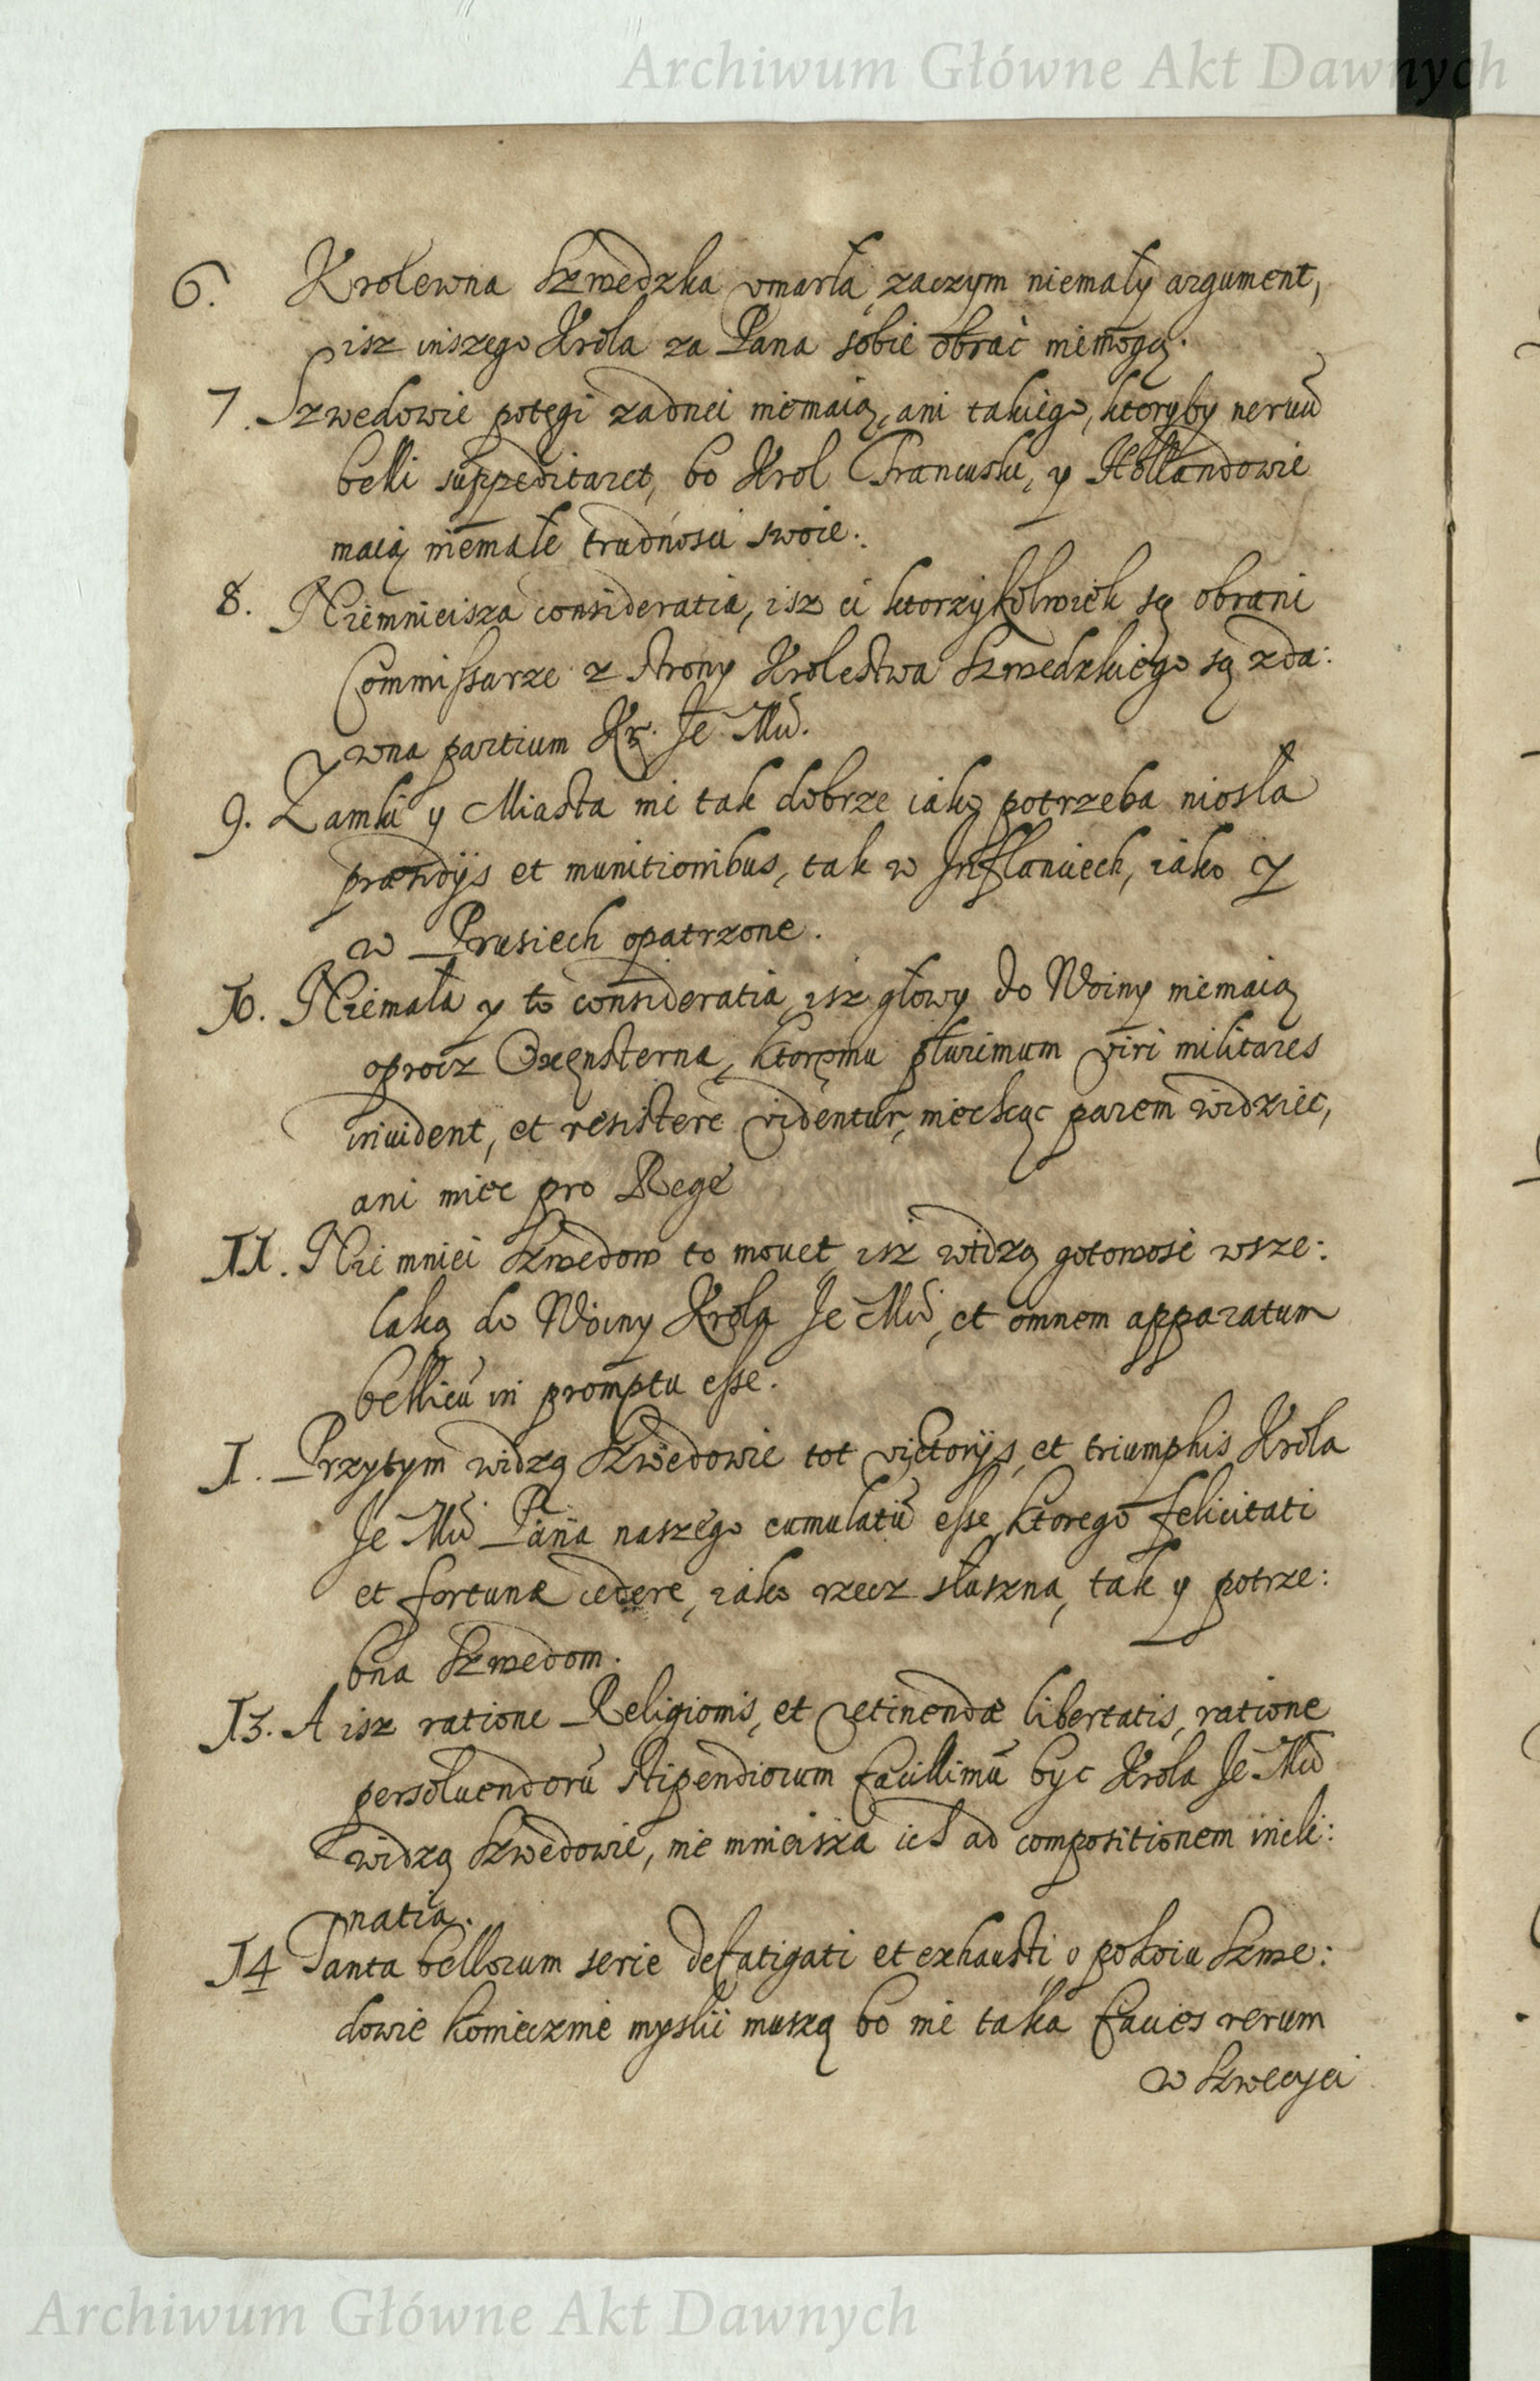 Archiwum Główne Akt Dawnych
6. Krolewna Szwedzka vmarła, zaczym niemały argument,
isz inszego Krola za Pana sobie obrać niemogą.
7. Szwedowie potęgi zadnei niemaią, ani takiego, ktoryby neruũ
belli suppeditaret, bo Krol Francuski, y Hollandowie
maią niemałe trudnosci swoie.
8. Niemnieisza consideratia, isz ci ktorzykolwiek są obrani
Commissarze z strony Krolestwa Szwedzkiego są zda:
wna partium Kr. Je Mci.
9. Zamki y Miasta nie tak dobrze iako potrzeba niosła
præsidijs et munitionibus, tak w Inflanciech, iako y
w Prusiech opatrzone.
10. Niemała y to consideratia isz głowy do Woiny niemaią
oprocz Oxęnsterna, ktoręmu plurimum viri militares
inuident, et resistere videntur, niechcąc parem widziec,
ani miec pro Rege
11. Nie mniei Szwedow to mouet isz widzą gotowosc wsze:
laką do Woiny Krola Je Mci, et omnem apparatum
bellicũ in promptu esse.
I. Przytym widzą Szwedowie tot victorijs et triumphis Krola
Je Mci Pana naszego cumulatũ esse, ktorego felicitati
et fortunæ cedere, iako rzecz słuszna, tak y potrze:
bna Szwedom.
13. A isz ratione Religionis, et retinendæ libertatis, ratione
persoluendorũ stipendiorum facillimũ byc Krola Je Mci
widzą Szwedowie, nie mnieisza ich ad compositionem incli:
natia.
14 Tanta bellorum serie defatigati et exhausti, o pokoiu Szwe:
dowie koniecznie myslic muszą bo nie taka facies rerum
w Szwecyei
Archiwum Główne Akt Dawnych